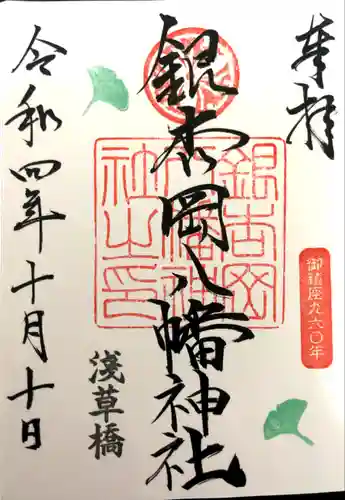 奉拝
銀杏岡八幡神社
令和四年十月十日
浅草橋
御鎮座九六〇年
銀杏岡
八幡神
社之印